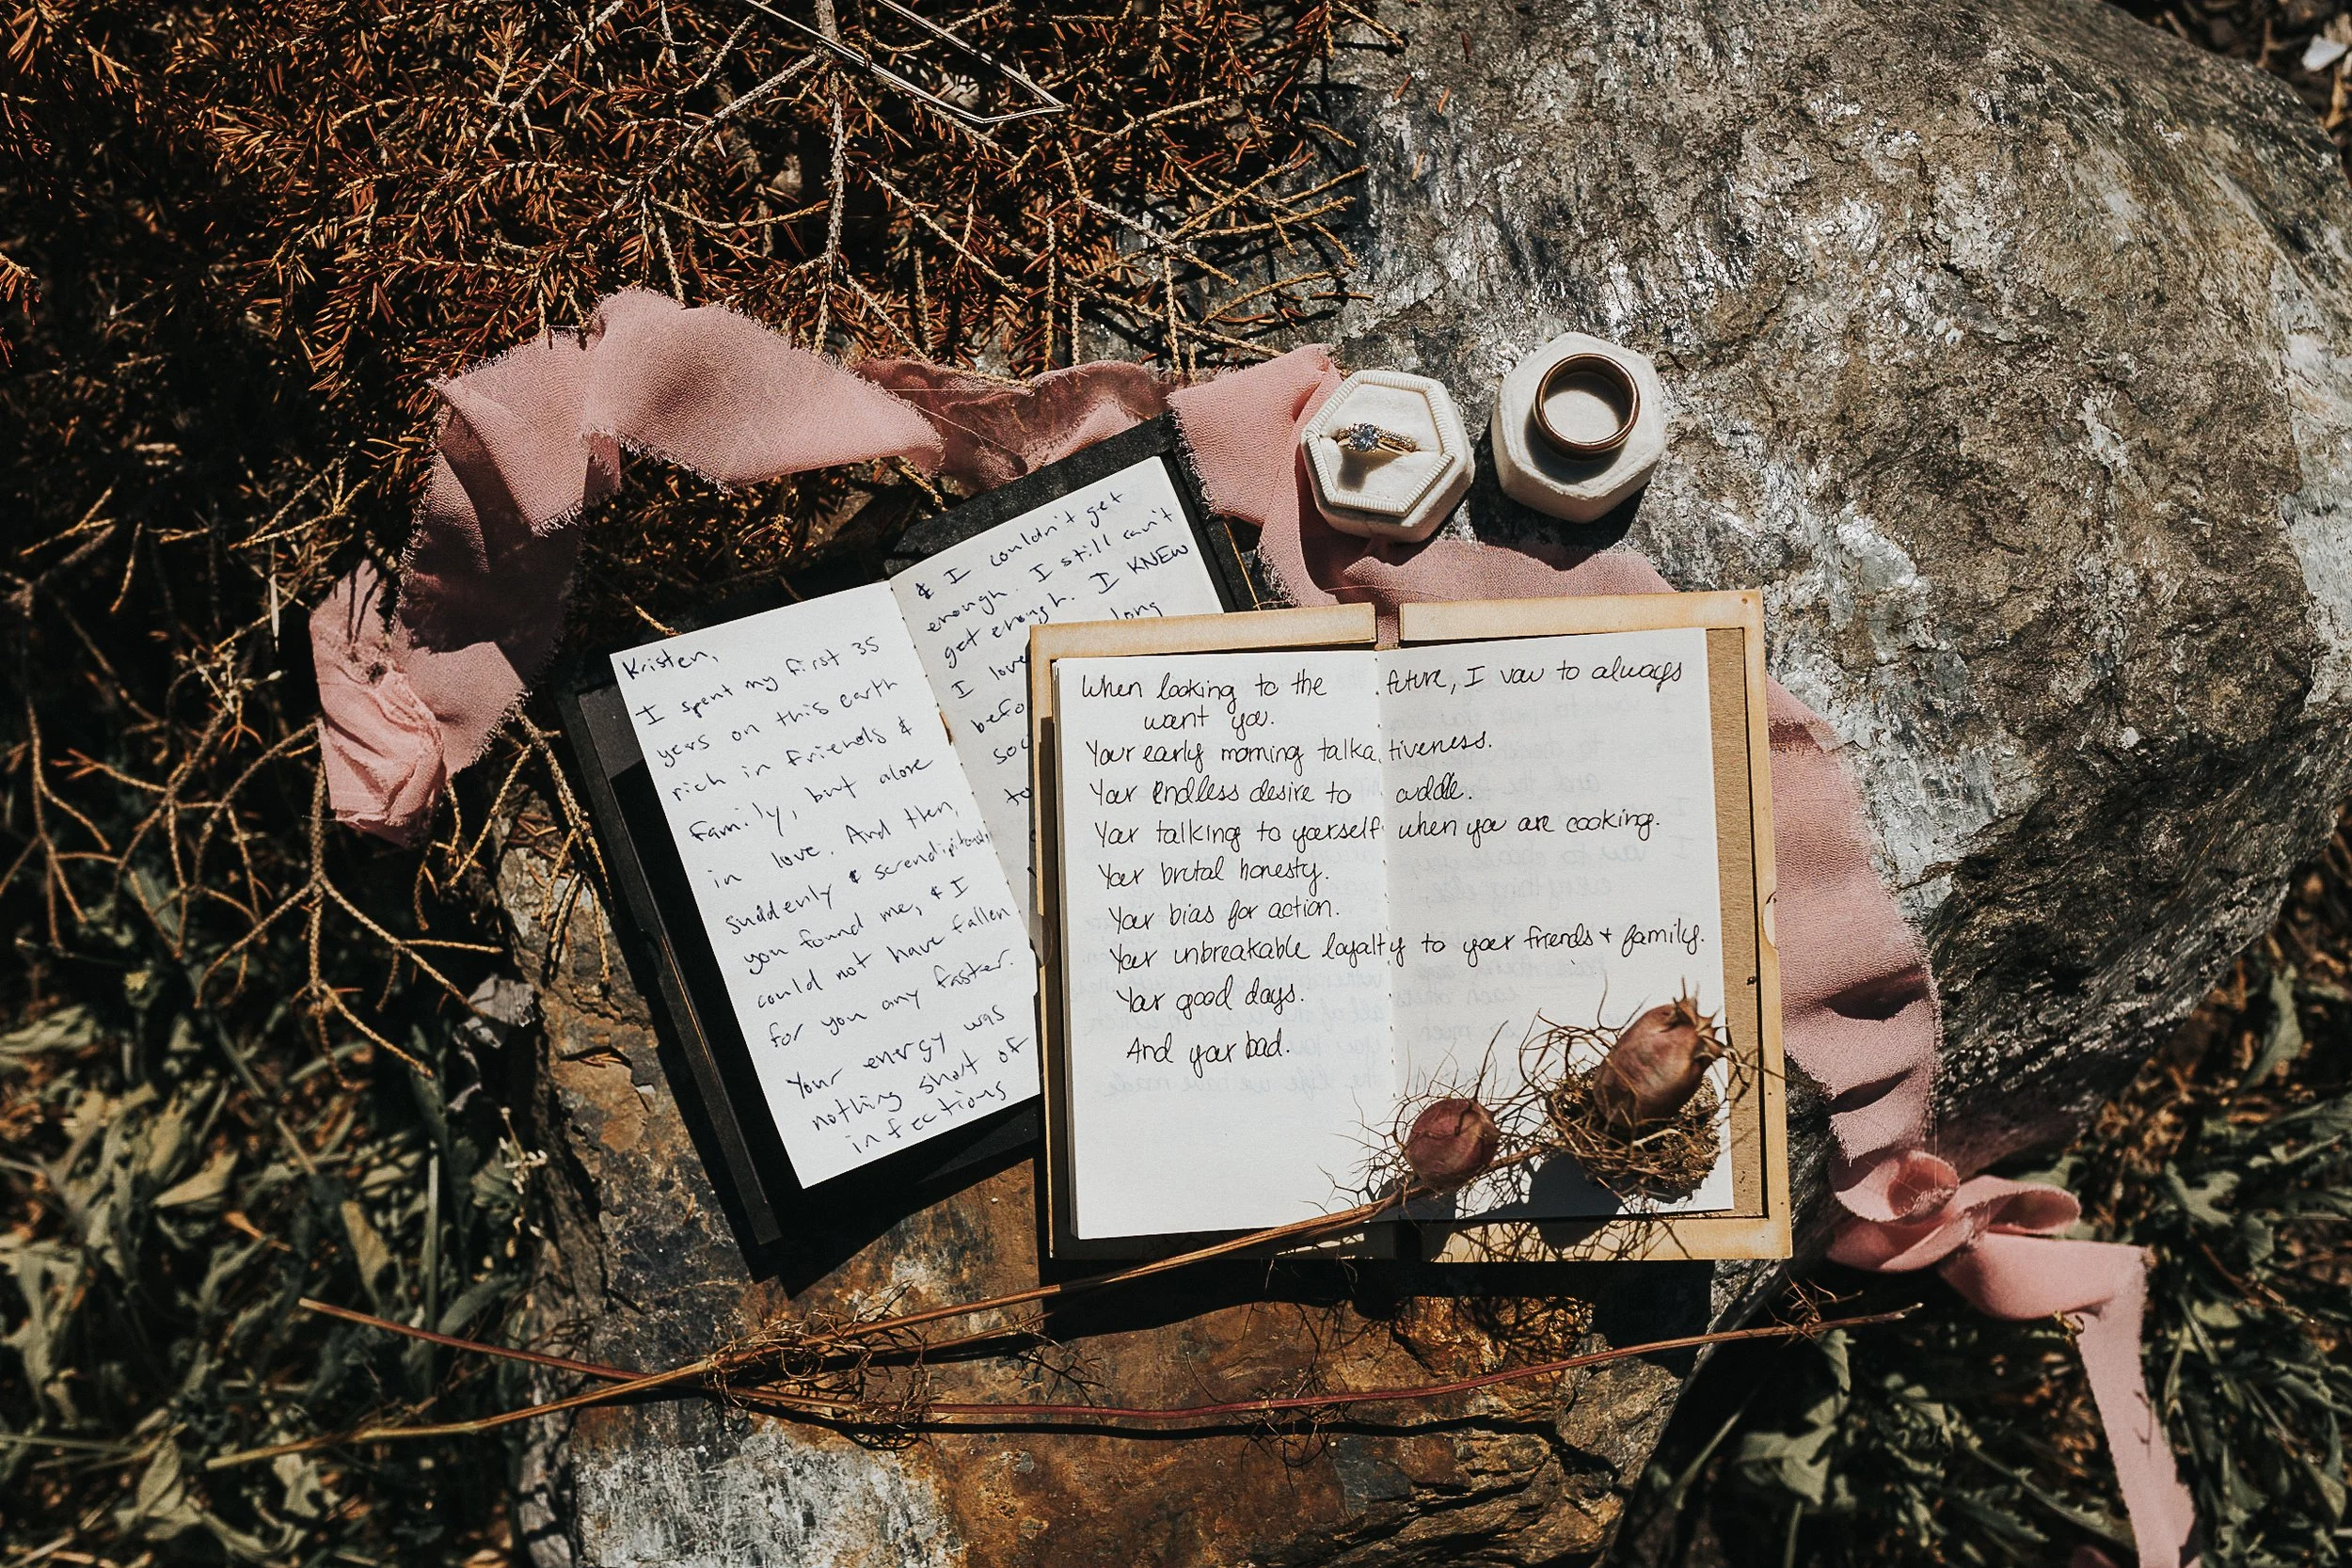 Kristen,
I spent my first 35
years on this earth
rich in friends &
family, but alone
in love. And then,
suddenly & serendipitously
you found me, & I
could not have fallen
for you any faster.
Your energy was
nothing short of
infectious
& I couldn't get
enough. I still can't
get enough. I KNEW
long
I love
befo
soc
to
When looking to the future, I vow to always
want you.
Your early morning talkativeness.
Your endless desire to cuddle.
Your talking to yourself when you are cooking.
Your brutal honesty.
Your bias for action.
Your unbreakable loyalty to your friends + family.
Your good days.
And your bad.